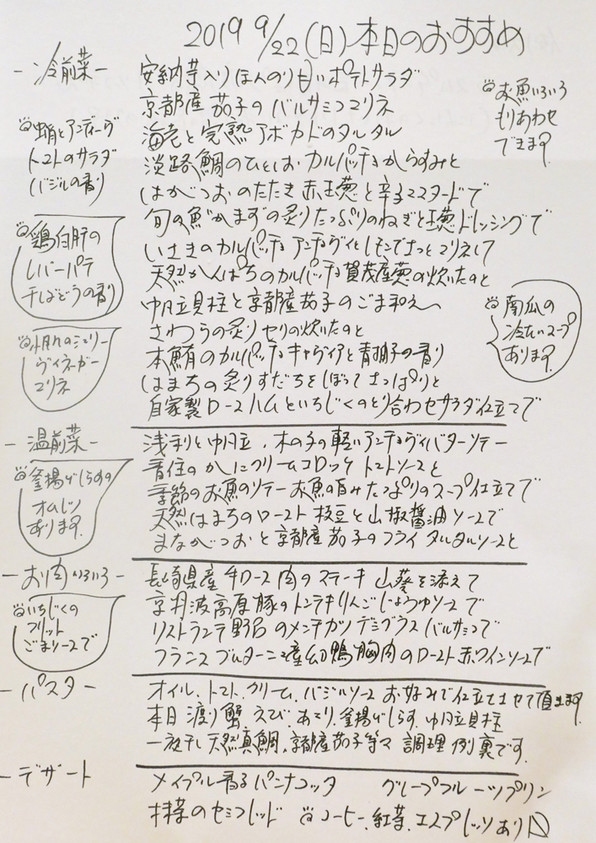 2019 9/22(日)本日のおすすめ
- 冷前菜 -
安納芋入りほんのり甘いポテトサラダ
京都産 茄子の バルサミコマリネ
海老と完熟アボカドのタルタル
淡路鯛のひとしお カルパッチョ からすみと
はがつおのたたき 赤玉葱と辛子マスタードで
旬の魚がまずの炙り たっぷりのねぎと玉葱ドレッシングで
いさきのカルパッチョ アンチョヴィとレモンでさっとマリネして
天然かんぱちのカルパッチョ 賀茂茄子の炊いたのと
帆立貝柱と京都産茄子のごま和え
さわらの炙り セリの炊いたのと
本鮪のカルパッチョ キャヴィアと青柚子の香り
はまちの炙り すだちをしぼって さっぱりと
自家製ロースハムといちじくのとり合わせ サラダ仕立てで
お魚いろいろ
もりあわせ
できます
蛸とアンディーヴ
トマトのサラダ
バジルの香り
鶏白肝の
レバーパテ
干しぶどうの香り
ヴィネガー
マリネ
南瓜の
冷たいスープ
あります
- 温前菜 -
浅利と帆立、木の子の軽いアンチョヴィバターソテー
香住のかにクリームコロッケ トマトソースと
季節のお魚のソテー お魚の旨みたっぷりのスープ仕立てで
天然はまちのロースト 枝豆と山椒醤油ソースで
まながつおと京都産茄子のフライ タルタルソースと
釜揚げしらすの
オムレツ
あります
- お肉いろいろ -
長崎県産 牛ロース肉のステーキ 山葵を添えて
京丹波高原豚のトンテキ りんごじょうゆソースで
リストランテ野呂のメンチカツ デミグラス バルサミコで
フランス ブルターニュ産 幼鴨胸肉のロースト 赤ワインソースで
いちじくの
フリット
ごまソースで
- パスタ -
オイル、トマト、クリーム、バジルソース お好みで仕立てさせて頂きます
本日 渡り蟹、えび、あさり、釜揚げしらす、帆立貝柱
一夜干し天然真鯛、京都産茄子等々 調理例裏です
- デザート
メイプル香るパンナコッタ
グレープフルーツプリン
抹茶のセミフレッド
コーヒー、紅茶、エスプレッソあり